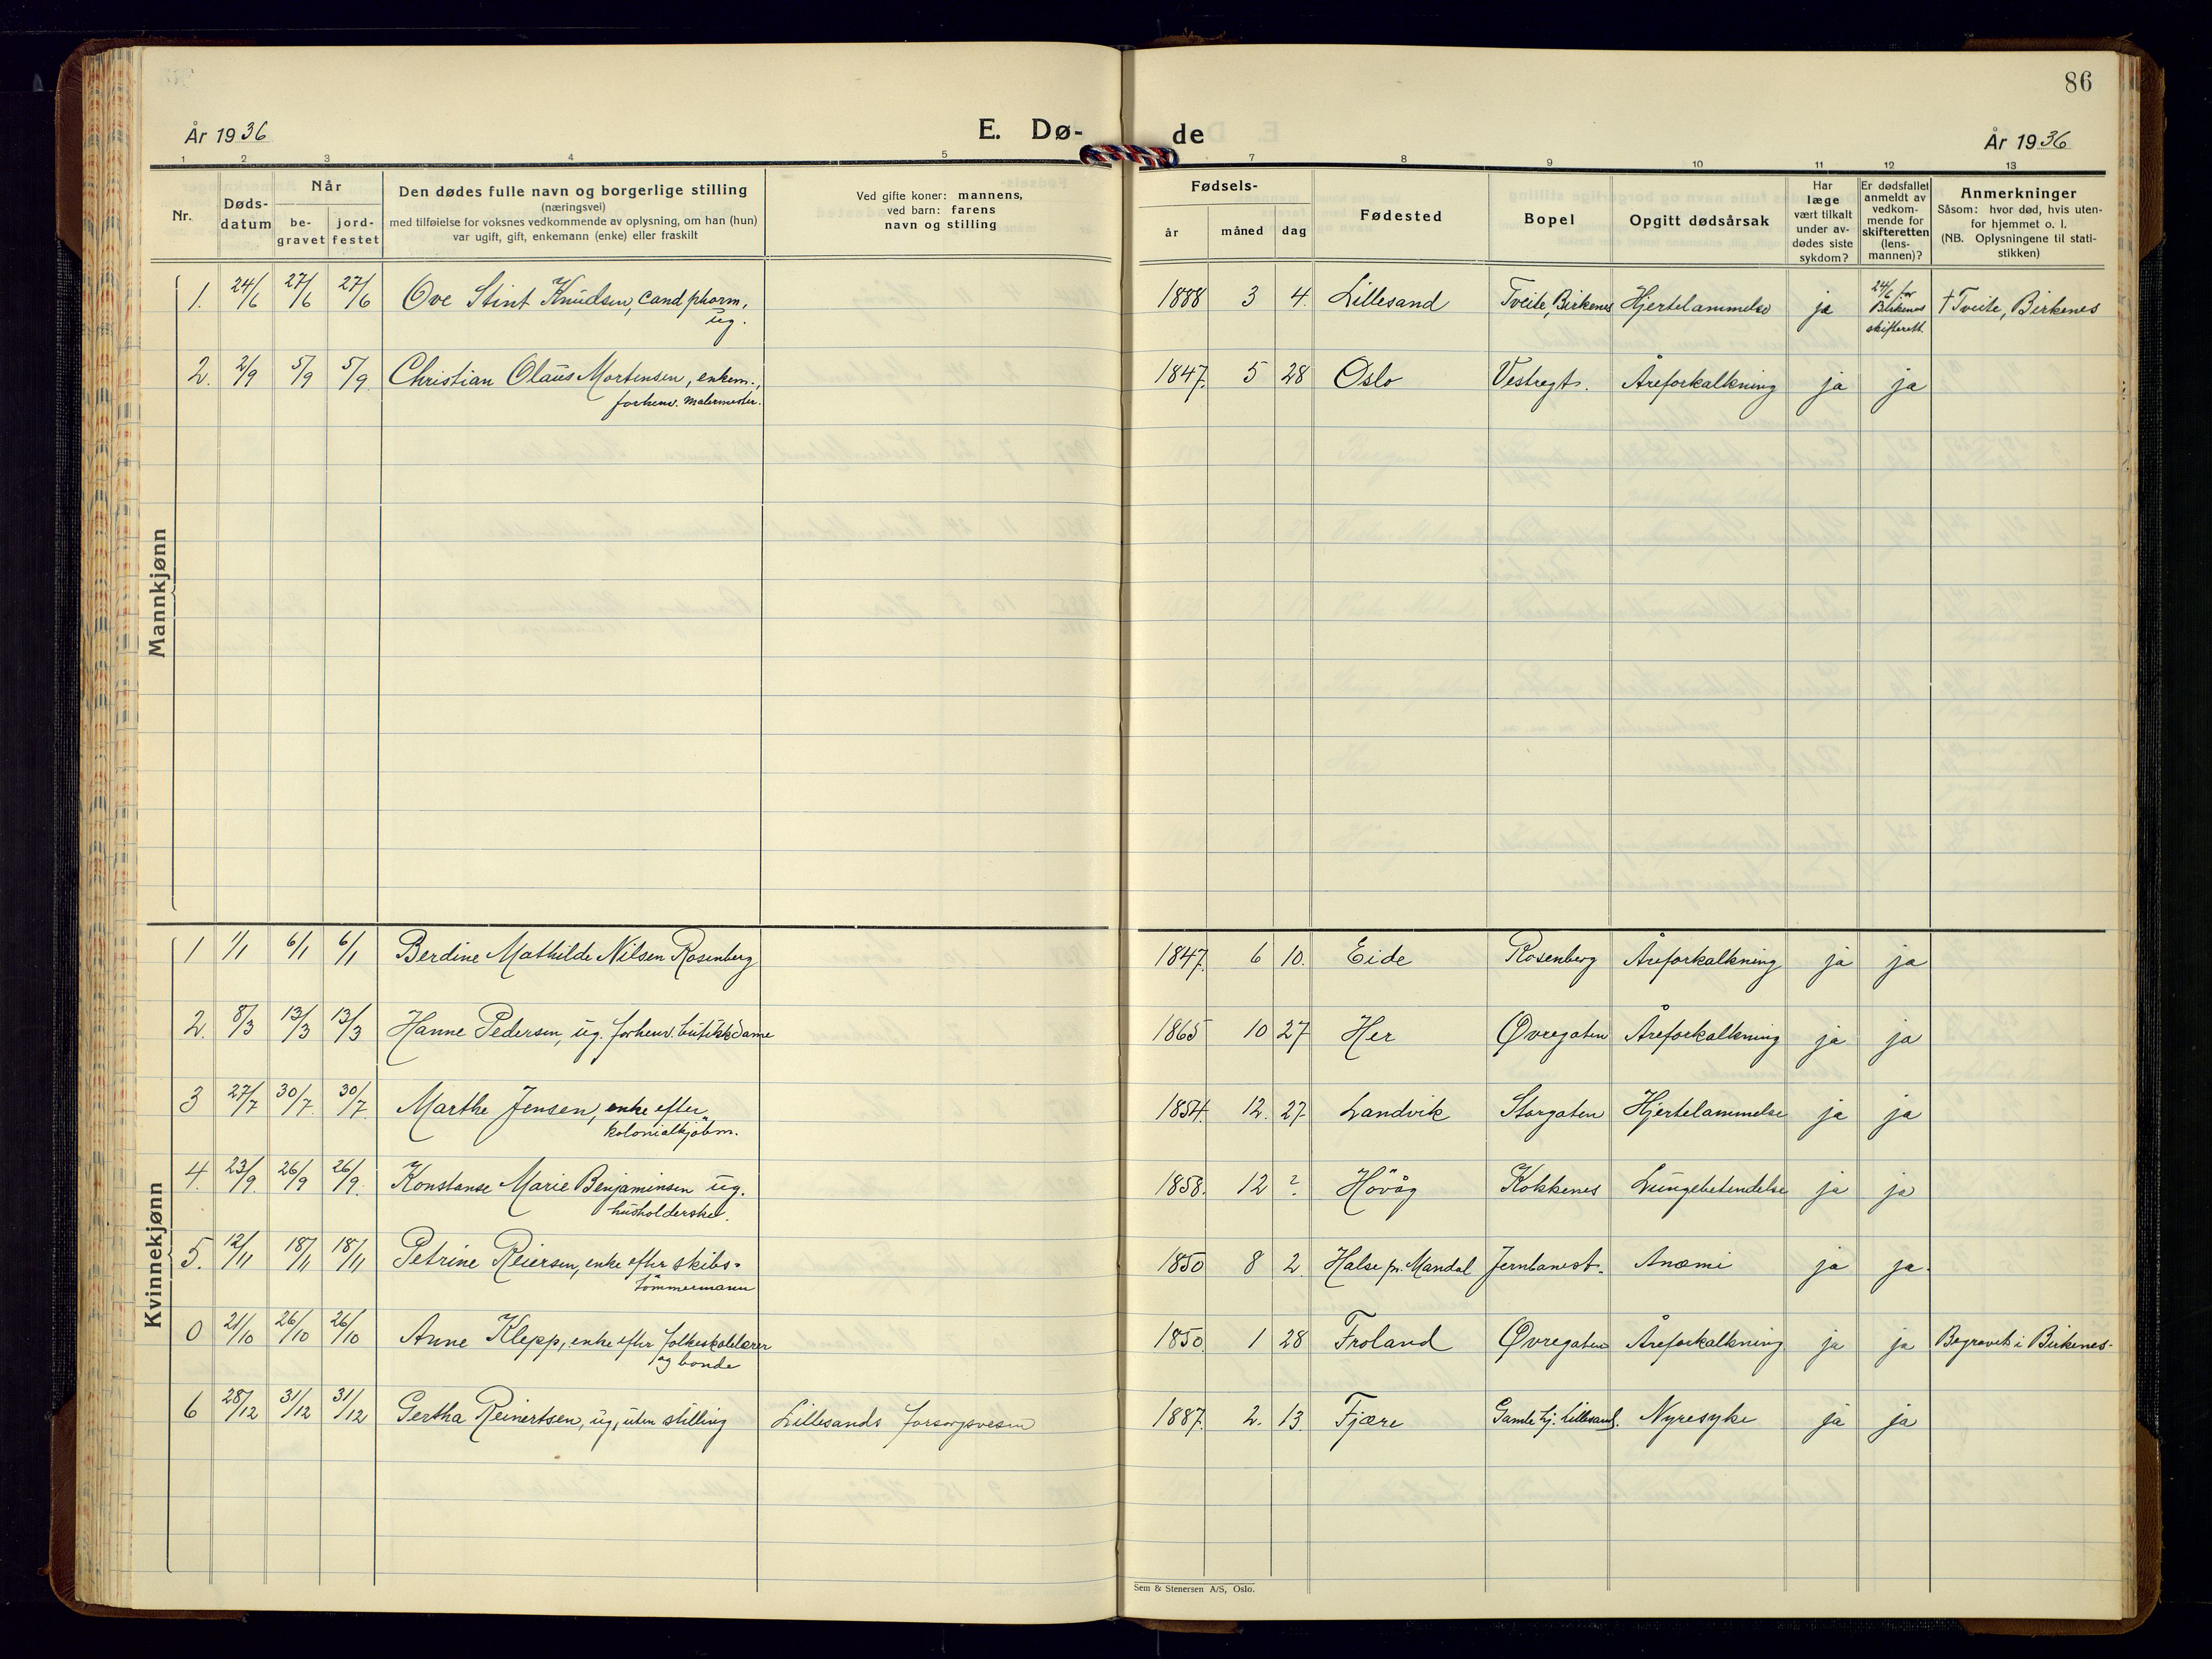 86
År 1936
E. Dø-
de
År 1936
1 2 3 4 5 7 8 9 10 11 12 13
Nr.
Døds-
datum
Når
be-
gravet
jord-
festet
Den dødes fulle navn og borgerlige stilling
(næringsvei)
med tilføielse for voksnes vedkommende av oplysning, om han (hun)
var ugift, gift, enkemann (enke) eller fraskilt
Ved gifte koner: mannens,
ved barn: farens
navn og stilling
Fødsels-
år
måned
dag
Fødested
Bopel
Opgitt dødsårsak
Har
læge
vært tilkalt
under av-
dødes siste
sykdom?
Er dødsfallet
anmeldt av
vedkom-
mende for
skifteretten
(lens-
mannen)?
Anmerkninger
Såsom: hvor død, hvis uten-
for hjemmet o. l.
(NB. Oplysningene til stati-
stikken)
Mannkjønn
1. 24/6 27/6 27/6 Ove Stint Knudsen, cand pharm, 1888 3 4. Lillesand Tveite, Birkenes Hjertelammelse ja 24/6 for † Tveite, Birkenes
ug. Birkenes
skifterett.
2. 2/9 5/9 5/9 Christian Olaus Mortensen, enkem., 1847. 5 28 Oslo Vestregt. Åreforkalkning ja ja
forhenv. malermester.
Kvinnekjønn
1 1/1 6/1 6/1 Berdine Mathilde Nilsen Rosenberg 1847. 6 10. Eide Rosenberg Åreforkalkning ja ja
2. 8/3 13/3 13/3 Hanne Pedersen, ug. forhenv. butikkdame 1865 10 27 Her Øvregaten Åreforkalkning ja ja
3 27/7 30/7 30/7 Marthe Jensen, enke efter 1854. 12. 27 Landvik Storgaten Hjertelammelse ja ja
kolonialkjøbm.
4. 23/9 26/9 26/9 Konstanse Marie Benjaminsen ug. 1858. 12 ? Høvåg Kokkenes Lungebetendelse ja ja
husholderske.
5. 12/11 18/11 18/11 Petrine Reiersen, enke efter skibs- 1850 8 2 Halse pr. Mandal Jernbanest. Anæmi ja ja.
tømmermann
0 21/10 26/10 26/10 Anne Klepp, enke efter folkeskolelærer 1850. 1 28 Froland Øvregaten Åreforkalkning ja ja Begravet i Birkenes.
og bonde
6 28/12 31/12 31/12 Gertha Reinertsen, ug, uten stilling Lillesands forsorgsvesen 1887. 2. 13. Fjære Gamle hj. Lillesand. Nyresyke ja ja
Sem & Stenersen A/S, Oslo.